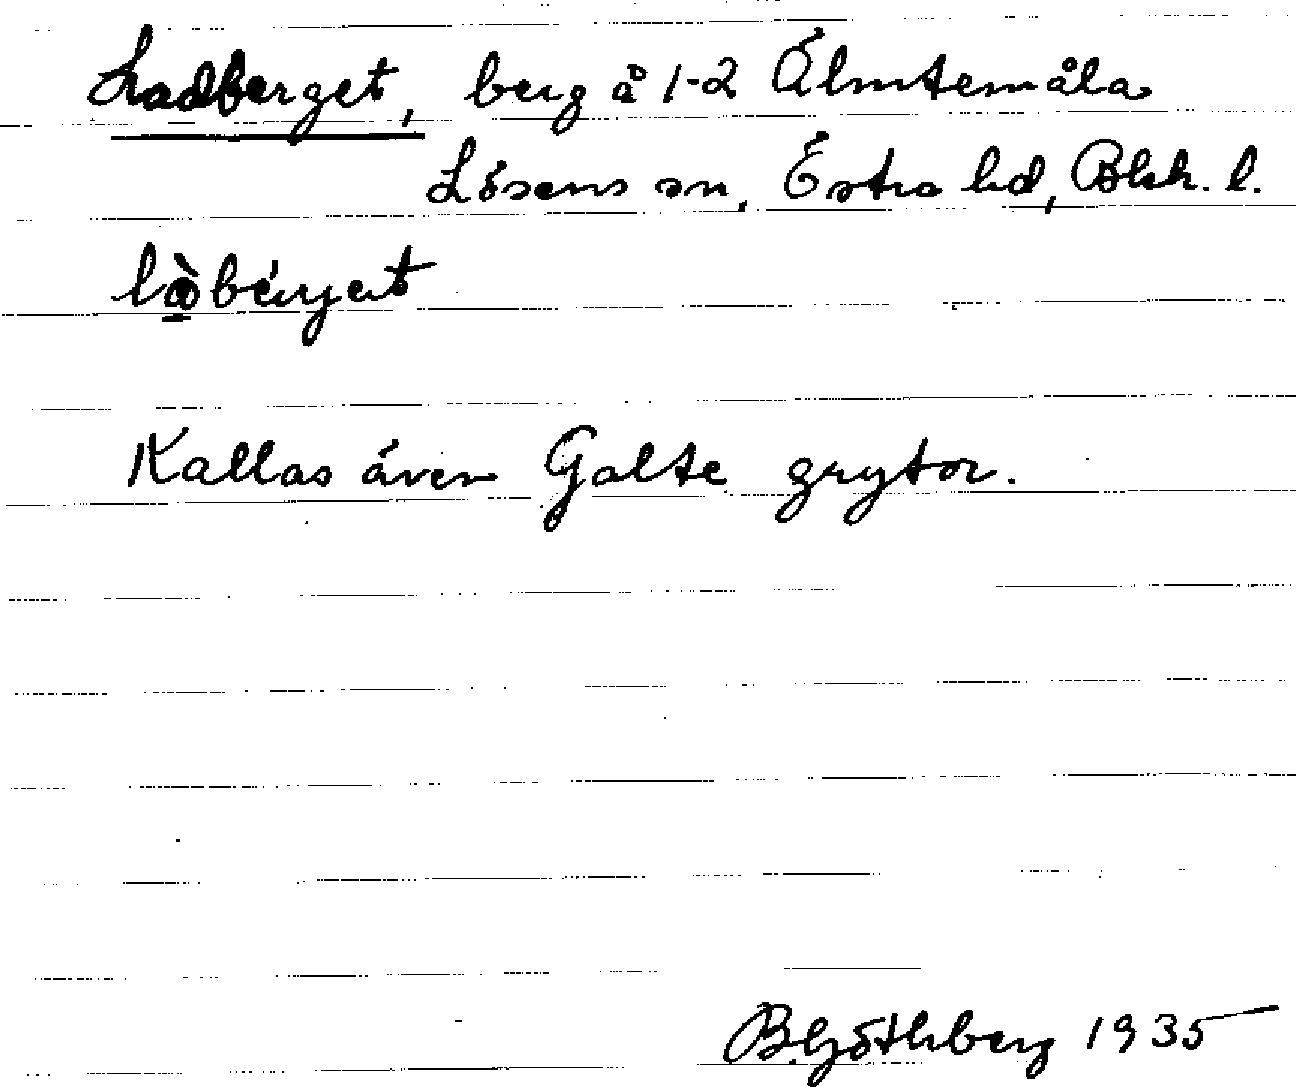 Ladberget, berg å 1-2 Älmtemåla
Lösens sn, Östra hd, Blek. l.
làbérjet
Kallas även Galte grytor.
B. Göthberg 1935